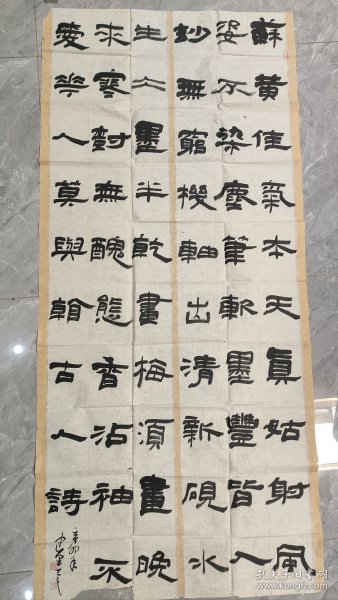 蘇黄佳氣本天真姑射風
姿不染塵筆斬墨豐皆入
妙無窮機軸出清新硯水
生仌墨半乾畫梅須畫晚
來寒對無醜態香沾袖不
愛華人莫與翰古人詩
辛卯年
孔夫子旧书网